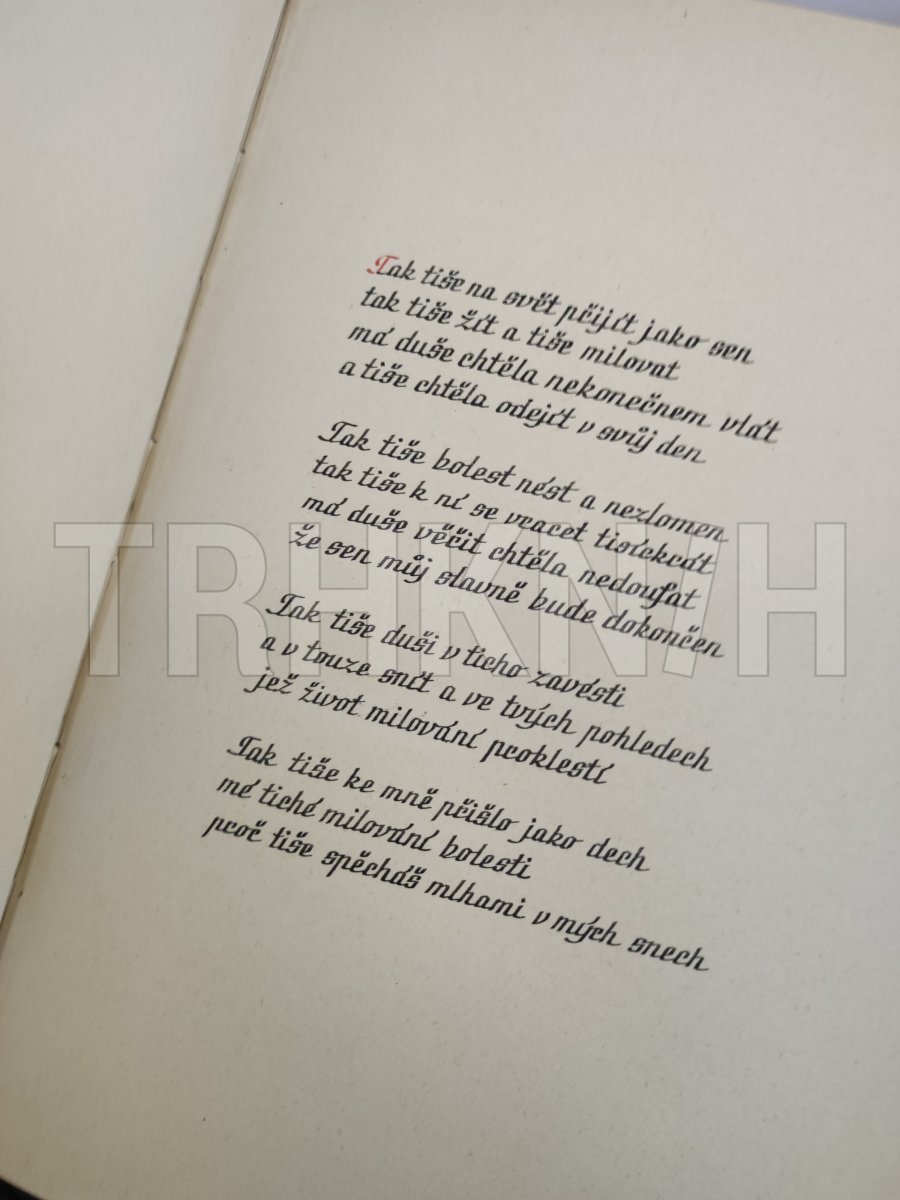 Tak tiše na svět přijít jako sen
tak tiše žít a tiše milovat
má duše chtěla nekonečnem vlát
a tiše chtěla odejít v svůj den
Tak tiše bolest nést a nezlomen
tak tiše k ní se vracet tisíckrát
má duše věčit chtěla nedoufat
že sen můj slavně bude dokončen
Tak tiše duši v ticho zavésti
a v touze snít a ve tvých pohledech
jež život milování proklestí
Tak tiše ke mně přišlo jako dech
mé tiché milování bolesti
proč tiše spěcháš mlhami v mých snech
TRHKNIH